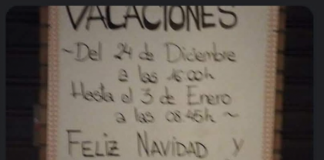 VACACIONES
~Del 24 de Diciembre
a las 16:00h
Hasta el 3 de Enero
a las 08:45h~
FELIZ NAVIDAD y